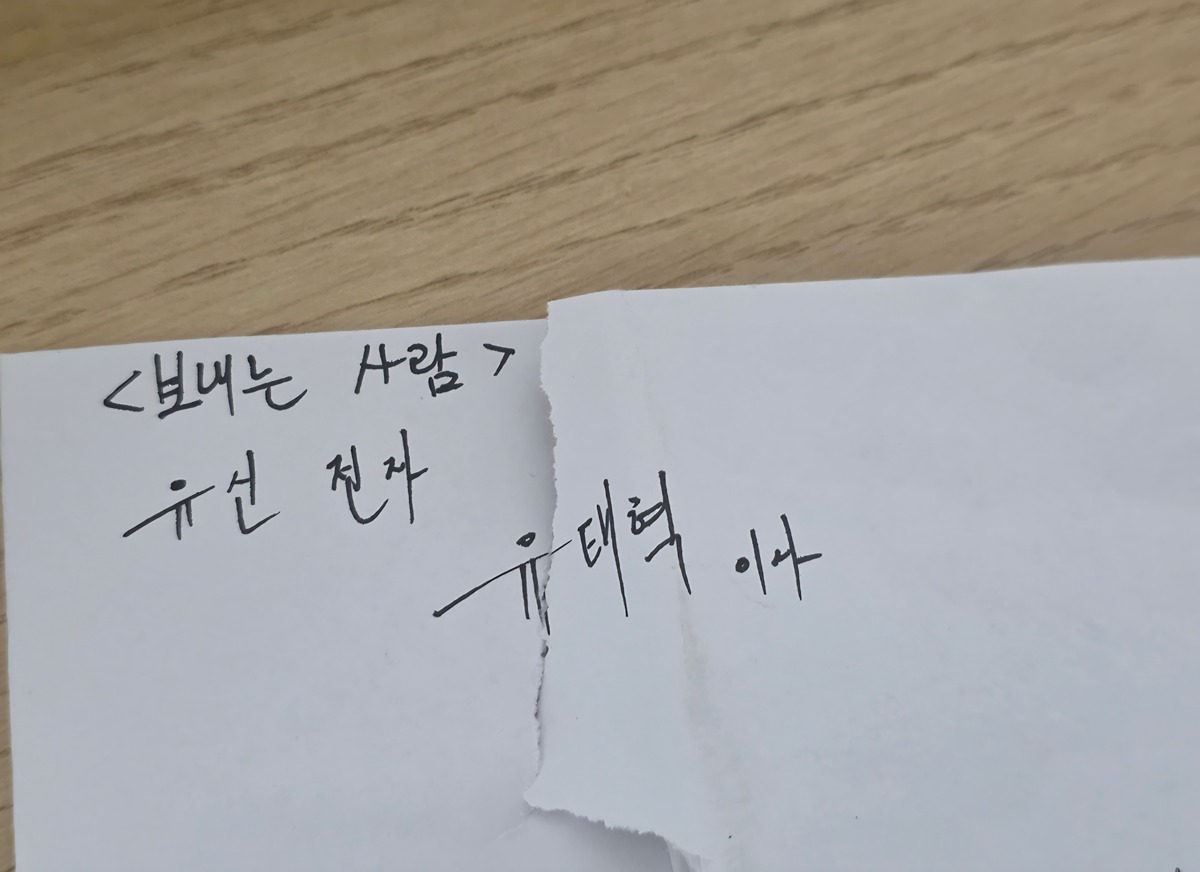 <보내는 사람>
유선 전자
유태혁 이사